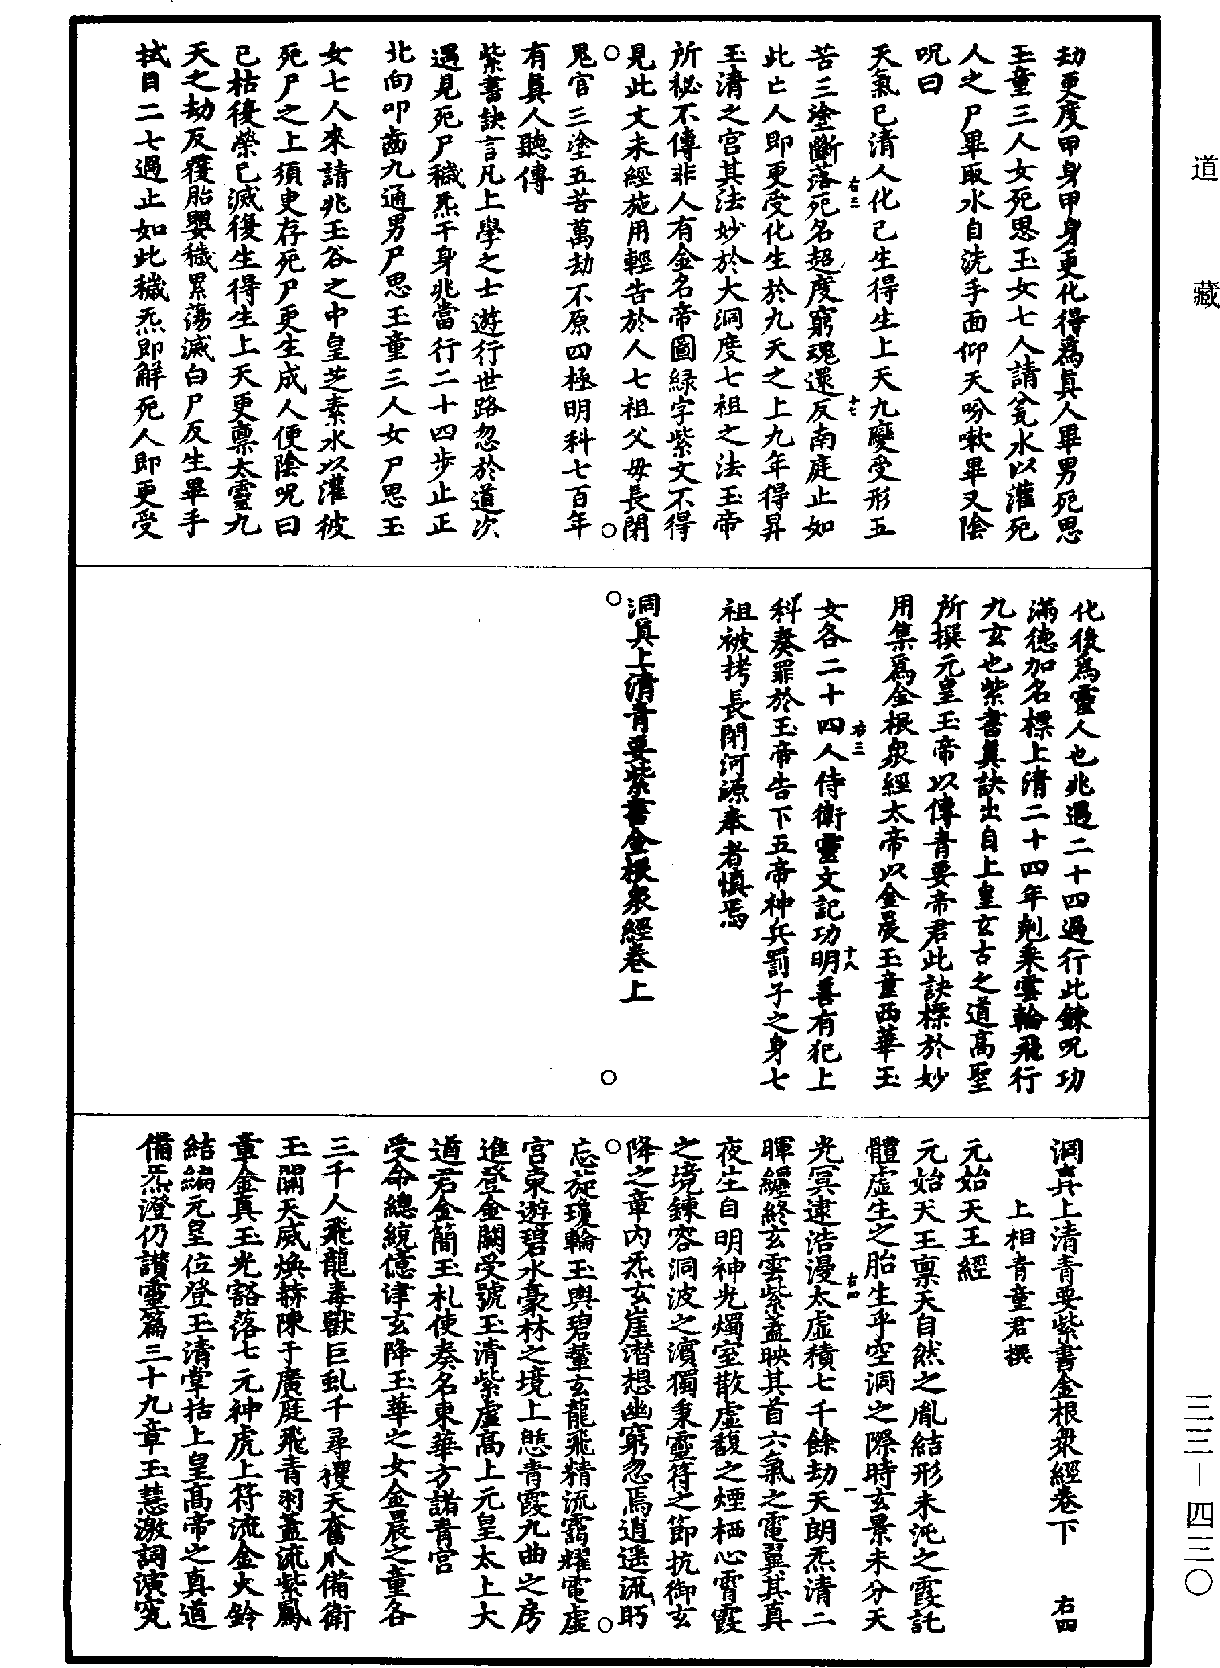 道藏
劫更度甲身甲身更化得為真人畢男死思
玉童三人女死思玉女七人請瓮水以灌死
人之尸畢取水自洗手面仰天吩嗽畢又陰
呪曰
天氣已清人化已生得生上天九變受形五
苦三塗斷落死名超度窮魂還反南庭止如
此亡人即更受化生於九天之上九年得昇
玉清之宮其法妙於大洞度七祖之法玉帝
所秘不傳非人有金名帝圖綠字紫文不得
見此文未經施用輕告於人七祖父母長閉
鬼官三塗五苦萬劫不原四極明科七百年
有真人聽傳
紫書訣言凡上學之士遊行世路忽於道次
遇見死尸穢炁干身兆當行二十四步止正
北向叩齒九通男尸思玉童三人女尸思玉
女七人來請兆玉谷之中皇芝素水以灌彼
死尸之上須臾存死尸更生成人便陰呪曰
已枯復榮已滅復生得生上天更稟太靈九
天之劫反覆胎嬰穢累蕩滅白尸反生畢手
拭目二七過止如此穢炁即解死人即更受
右三
十七
化後為靈人也兆過二十四過行此鍊呪功
滿德加名標上清二十四年剋乘雲輪飛行
九玄也紫書真訣出自上皇玄古之道高聖
所撰元皇玉帝以傳青要帝君此訣標於妙
用集為金根眾經太帝以金晨玉童西華玉
女各二十四人侍衛靈文記功明善有犯上
科奏罪於玉帝告下五帝神兵罰子之身七
祖被拷長閉河源奉者慎焉
右三
十八
洞真上清青要紫書金根眾經卷上
洞真上清青要紫書金根眾經卷下 右四
上相青童君撰
元始天王經
元始天王稟天自然之胤結形未沌之霞託
體虛生之胎生乎空洞之際時玄景未分天
光冥逮浩漫太虛積七千餘劫天朗炁清二
暉纏終玄雲紫蓋映其首六氣之電翼其真
夜生自明神光燭室散虛馥之煙栖心霄霞
之境鍊容洞波之濱獨秉靈符之節抗御玄
降之章內炁玄崖潛想幽窮忽焉逍遙流眄
忘旋瓊輪玉輿碧輦玄龍飛精流靄耀電虛
宮東遊碧水豪林之境上憩青霞九曲之房
進登金闕受號玉清紫虛高上元皇太上大
道君金簡玉札使奏名東華方諸青宮
受命總統億津玄降玉華之女金晨之童各
三千人飛龍毒獸巨虬千尋攫天奮爪備衛
玉闕天威煥赫陳于廣庭飛青羽蓋流紫鳳
章金真玉光豁落七元神虎上符流金火鈴
結編元皇位登玉清掌括上皇高帝之真道
備炁澄仍讚靈篇三十九章玉慧激詞演究
右四
一
三三－四三〇